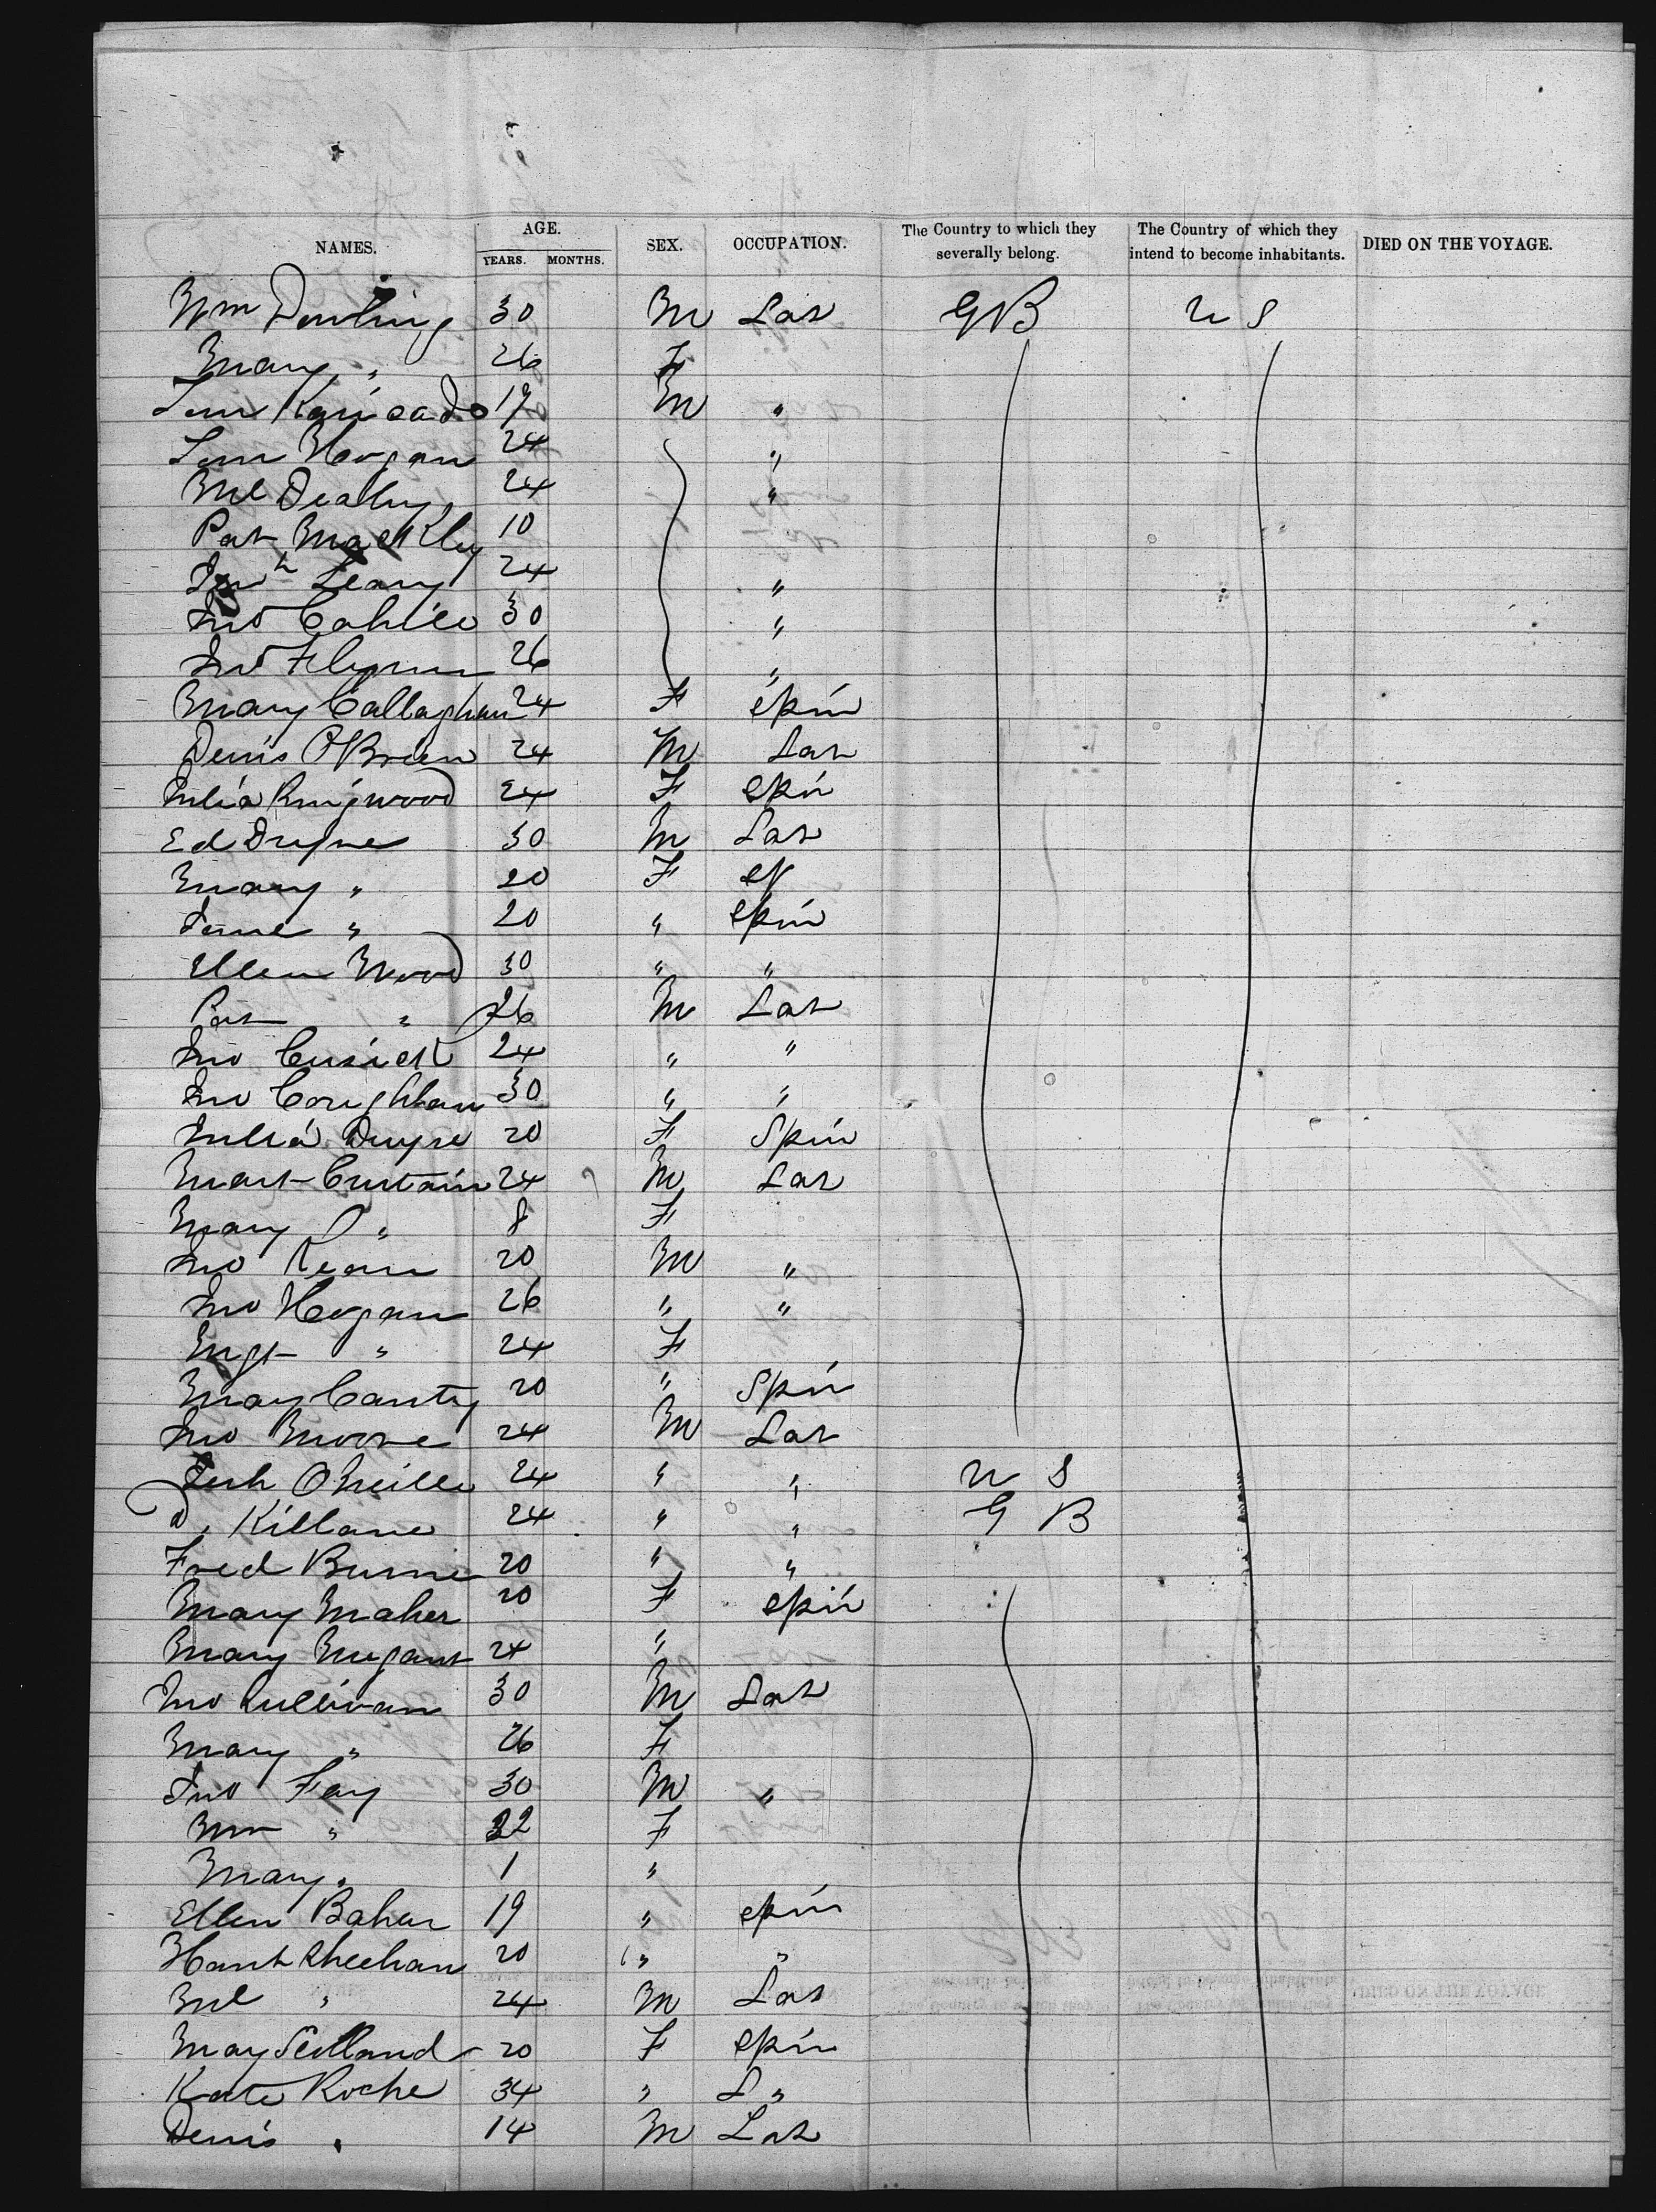 NAMES. AGE. YEARS. MONTHS. SEX. OCCUPATION. The Country to which they severally belong. The Country of which they intend to become inhabitants. DIED ON THE VOYAGE.
Wm Dowling 30 M Lab G B U S
Mary " 26 F
19 M "
Hogan 24 "
Ml Dealy 24 "
Pat 10
Leary 24 "
Jno Cahill 30 "
Jno Flynn 26 "
Mary Callaghan 24 F Spin
Denis O'Brien 24 M Lab
Julia Ringwood 24 F Spin
Ed Dwyne 30 M Lab
Mary " 20 F
Jane " 20 " Spin
Ellen Wood 30 " "
Pat " 26 M Lab
Jno Cusick 24 " "
Jno Coughlan 30 " "
Julia Dwyre 20 F Spin
Mart Curtain 24 M Lab
Mary " 8 F
Jno Kean 20 M "
Jno Hogan 26 " "
Mgt " 24 F
Mary Canty 20 " Spin
Jno Moore 24 M Lab
O'Neill 24 " " U S
D. Killane 24 " " G B
Fred Burne 20 " "
Mary Maher 20 F Spin
Mary 24 "
Jno Sullivan 30 M Lab
Mary " 26 F
Jno Fay 30 M "
" 22 F
Mary " 1 "
Ellen Bahan 19 " Spin
Hanh Sheehan 20 " "
Ml " 24 M Lab
May 20 F Spin
Kate Roche 34 " S "
Denis " 14 M Lab